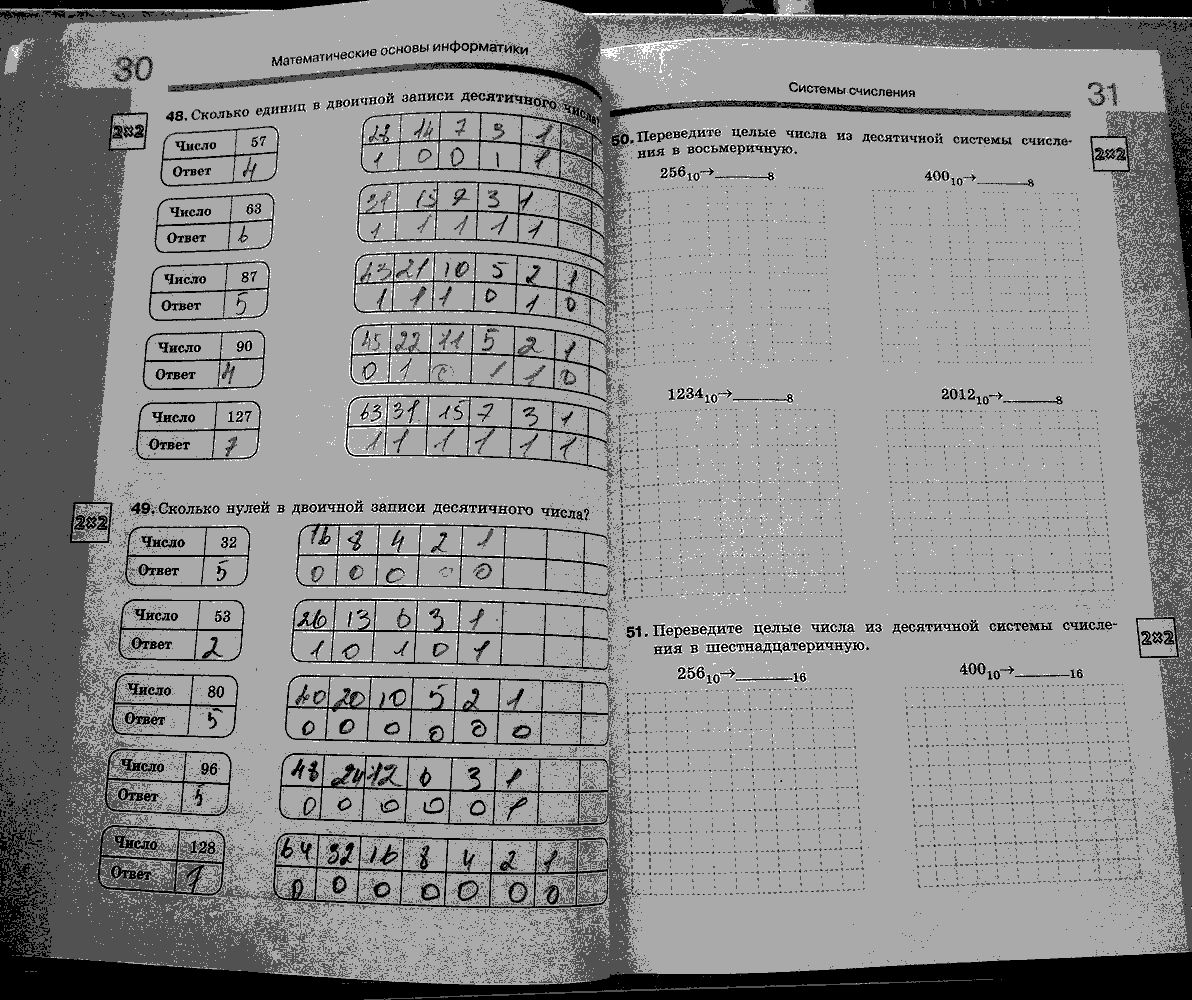 30
Математические основы информатики
48. Сколько единиц в двоичной записи десятичного числа?
2x2
Число 57
Ответ 4
28 14 7 3 1
1 0 0 1 1
Число 63
Ответ 6
31 15 7 3 1
1 1 1 1 1
Число 87
Ответ 5
43 21 10 5 2 1
1 1 1 0 1 0
Число 90
Ответ 4
45 22 11 5 2 1
0 1 0 1 1 0
Число 127
Ответ 7
63 31 15 7 3 1
1 1 1 1 1 1
49. Сколько нулей в двоичной записи десятичного числа?
2x2
Число 32
Ответ 5
16 8 4 2 1
0 0 0 0 0
Число 53
Ответ 2
26 13 6 3 1
1 0 1 0 1
Число 80
Ответ 5
40 20 10 5 2 1
0 0 0 0 0 0
Число 96
Ответ 5
48 24 12 6 3 1
0 0 0 0 0 1
Число 128
Ответ 7
64 32 16 8 4 2 1
0 0 0 0 0 0 0
Системы счисления
31
50. Переведите целые числа из десятичной системы счисле-
ния в восьмеричную.
2x2
256₁₀→______₈ 400₁₀→______₈
1234₁₀→______₈ 2012₁₀→______₈
51. Переведите целые числа из десятичной системы счисле-
ния в шестнадцатеричную.
2x2
256₁₀→______₁₆ 400₁₀→______₁₆